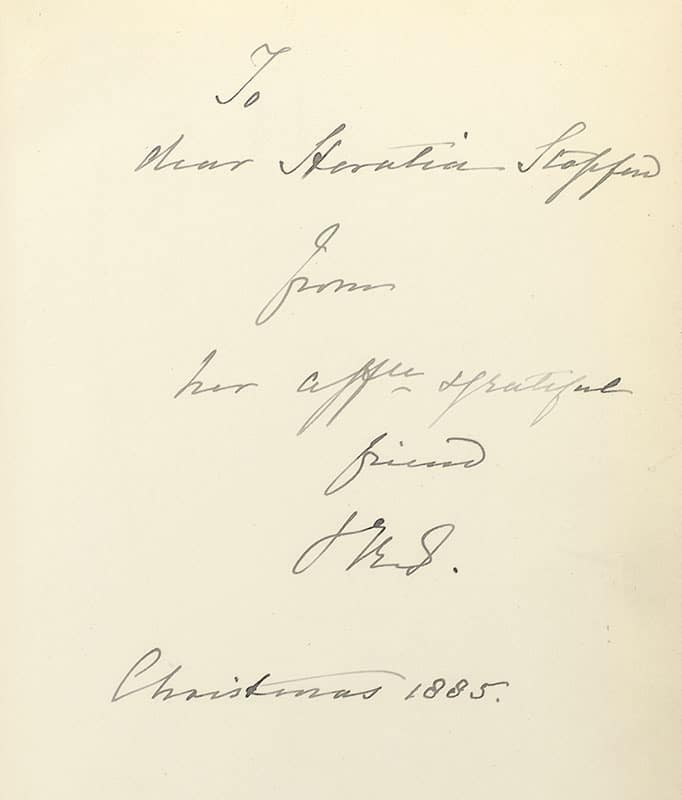 To
dear Horatia Stopford
from
her affte & grateful
friend
Christmas 1885.